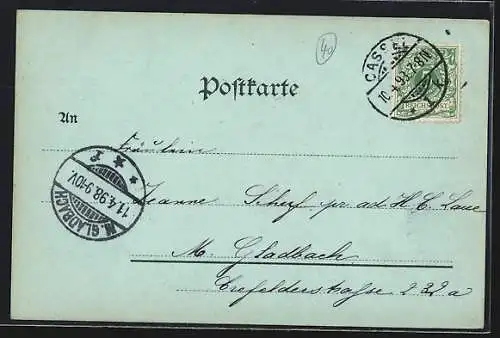 40
CASSEL
10.4.98.7-8N.
* 1 f.
REICHSPOST
Postkarte
An
Fräulein
Jeanne Scherf pr. ad. H. C. Laue
M. Gladbach
Crefelderstraße 232a
M. GLADBACH
11.4.98.9-10V.
* * f